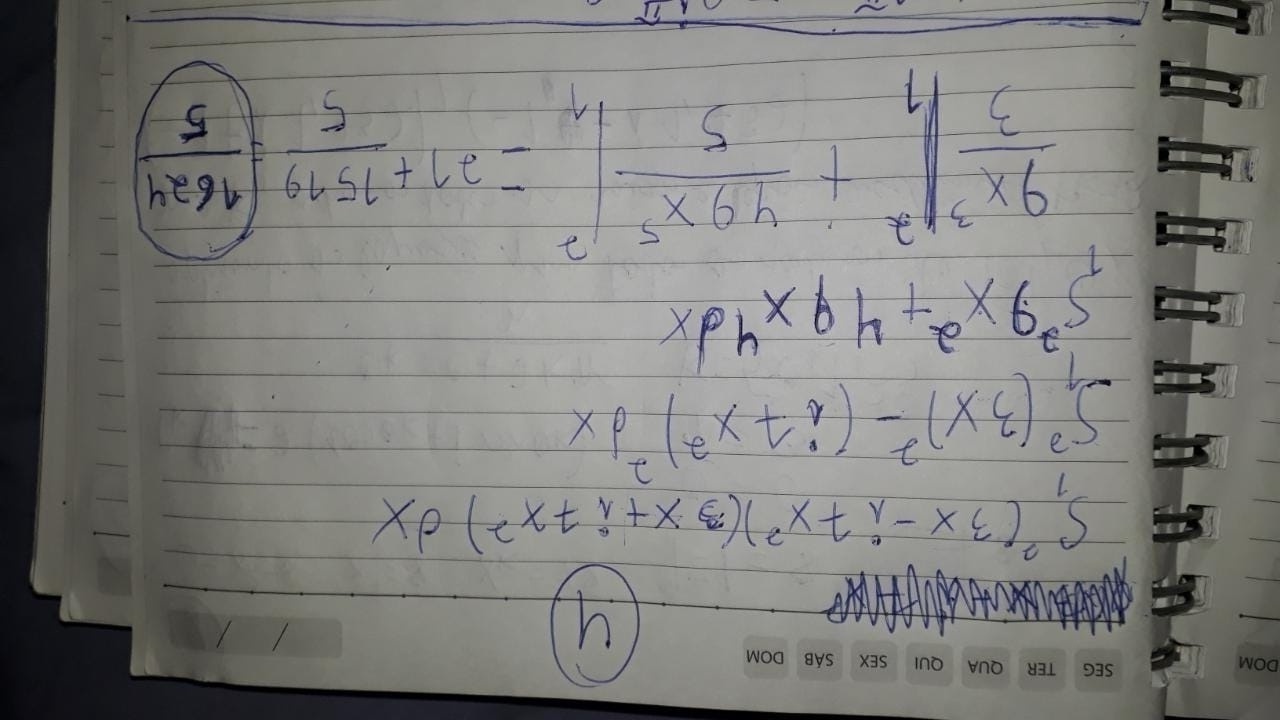 SEG TER QUA QUI SEX SÁB DOM
DOM
4
∫₁² (3x - i7x²)(3x + i7x²) dx
∫₁² (3x)² - (i7x²)² dx
∫₁² 9x² + 49x⁴ dx
9x³/3 |₁² + 49x⁵/5 |₁² = 21 + 1519/5 = 1624/5